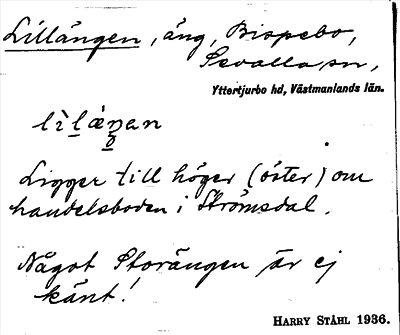 Lillängen, äng, Bispebo,
Sevalla sn,
Yttertjurbo hd, Västmanlands län.
Ligger till höger (öster) om
handelsboden i Strömsdal.
Något Storängen är ej
känt!
HARRY STÅHL 1936.